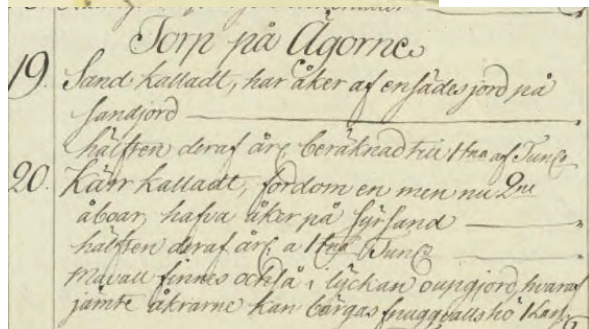 Torp på Ägorne
19. Sand kalladt, har åker af ensädes jord på
sandjord
hälften deraf åre beräknad till af Tun
20. Kärr kalladt, fordom en men nu 2ne
åboar, hafva åker på fursand
hälften deraf åre a Tun
finnes också i lyckan oupgjord, hvaraf
jämte åkrarne kan bärgas hö